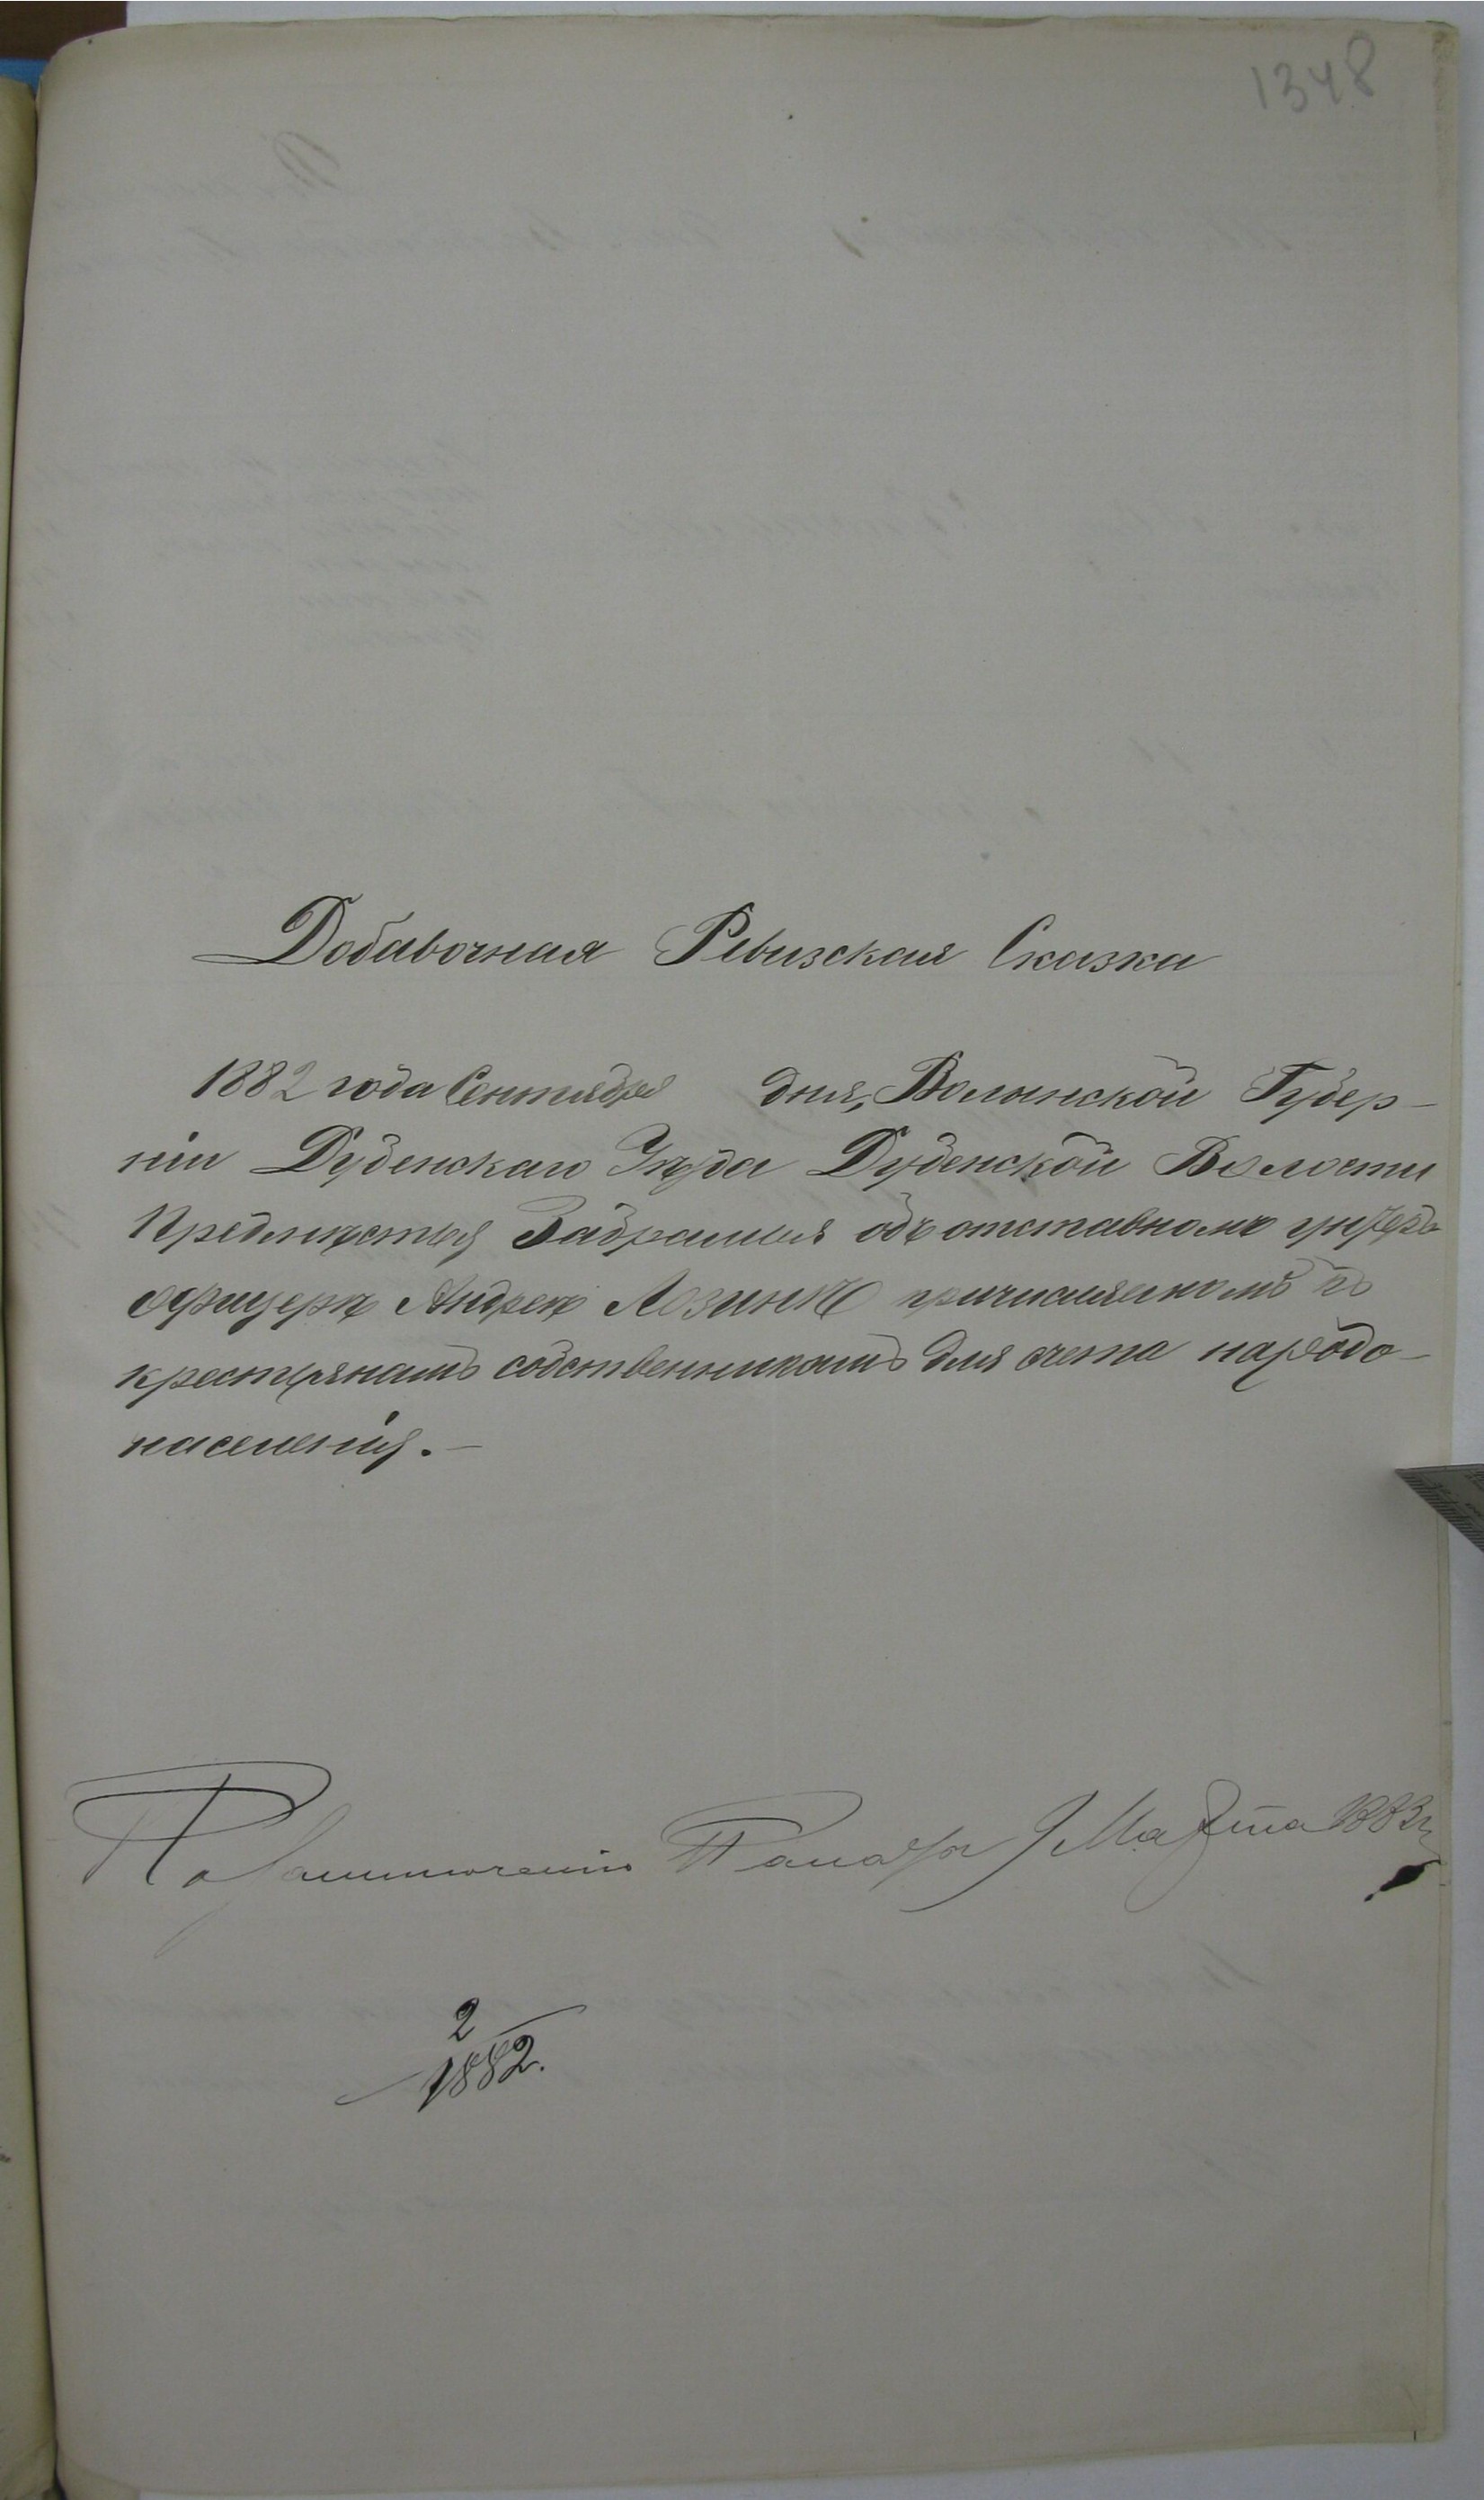 1348
Добавочная Ревизская Сказка
1882 года Сентября дня, Волынской Губер-
ніи Дубенскаго Уѣзда Дубенской Волости
Предмѣстья Забрамья объ отставномъ унтеръ
офицерѣ Андреѣ Лозинѣ причисляемомъ къ
крестьянамъ собственникамъ для счета народо-
населенія.-
Марта 1883 г
2
1882.